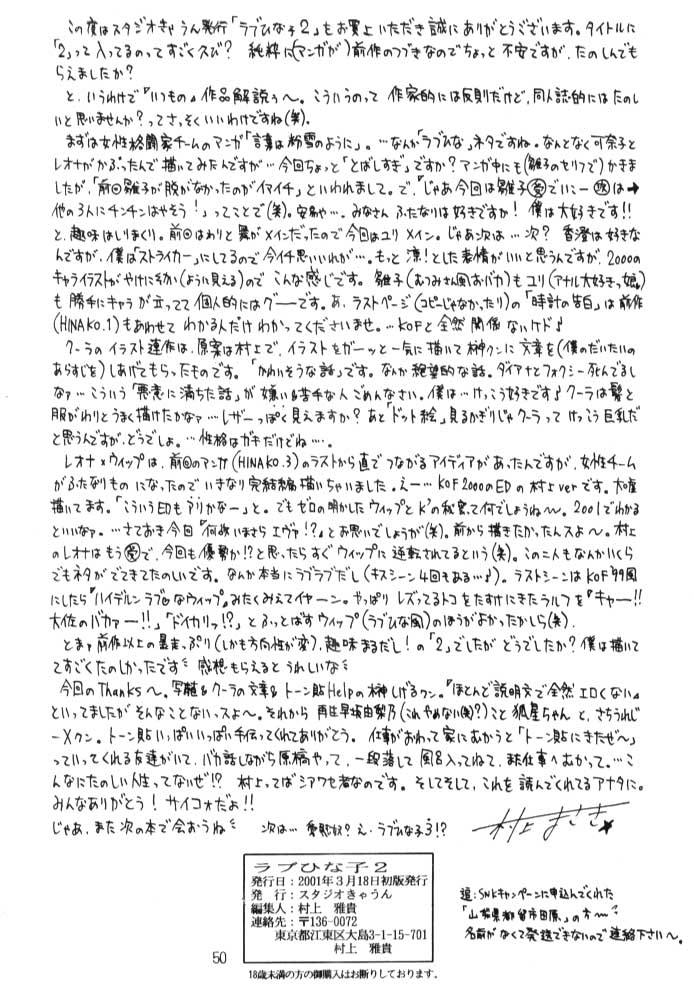 この度はスタジオきゃうん発行「ラブひな子2」をお買上いただき誠にありがとうございます。タイトルに
「2」って入ってるのってすごく久び? 純粋に(マンガが)前作のつづきなのでちょっと不安ですが、たのしんでも
らえましたか?
と、いうわけで『いつもの』作品解説ぅ〜。こういうのって作家的には反則だけど、同人誌的にはたのし
いと思いませんか?って、さっそくいいわけですね(笑)。
まずは女性格闘家チームのマンガ「言葉は粉雪のように」。…なんが「ラブひな」ネタですね。なんとなく可奈子と
レオナがかぶったんで描いてみたんですが…今回ちょっと「とばしすぎ」ですか?マンガ中にも(雛子のセリフで)かきま
したが、「前回雛子が脱がなかったのがイマイチ」といわれまして。で、「じゃあ今回は雛子
他の3人にチンチンはやそう!」ってことで(笑)。安易や…。みなさんふたなりは好きですか!僕は大好きです!!
と、趣味はしりまくり。前回はわりと舞がメインだったので今回はユリメイン。じゃあ次は…次? 香澄は好きな
んですが、僕はストライカーにしてるので今イチ思いいれが…。もっと凛!とした表情がいいと思うんですが、2000の
キャライラストがやけに幼い(ように見える)のでこんな感じです。雛子(むつみさん風おバカ)もユリ(アナル大好きっ娘)
も勝手にキャラが立ってて個人的にはグーです。あ、ラストページ(コピーじゃなかったり)の「時計の告白」は前作
(HINAKO.1)もあわせてわかる人だけわかってくださいませ。…KOFと全然関係ないケド♪
クーラのイラスト連作は、原案は村上で、イラストをガーッと一気に描いて榊クンに文章を(僕のだいたいの
あらすじを)しあげてもらったものです。「かわいそうな話」です。なんか絶望的な話。ダイアナとフォクシー死んでるし
なァ…こういう「悪意に満ちた話」が嫌い&苦手な人ごめんなさい。僕は…けっこう好きです♪クーラは髪と
服がわりとうまく描けたかなァ…レザーっぽく見えますか?あと「ドット絵」見るかぎりじゃクーラってけっこう巨乳だ
と思うんですが、どうでしょ。…性格はガキだけどね…。
レオナ×ウィップは、前回のマンガ(HINAKO.3)のラストから直でつながるアイディアがあったんですが、女性チーム
がふたなりものになったのでいきなり完結編描いちゃいました。えー…KOF2000のEDの村上verです。大嘘
描いてます。「こういうEDもアリかなー」と。でもゼロの明かしたウィップとK'の秘密て何でしょうね〜。2001でわかる
といいなァ。…さておき今回『何故いまさらエヴァ!?』とお思いでしょうが(笑)。前から描きたかったんスよ〜。村上
のレオナはもう受で、今回も優勢か!?と思ったらすぐウィップに逆転されてるという(笑)。この二人もなんかいくら
でもネタがでてきてたのしいです。なんか本当にラブラブだし(キスシーン4回もある…♪)。ラストシーンはKOF99風
にしたら『ハイデルンラブ♡なウィップ』みたくみえてイヤーン。やっぱりレズってるトコをたすけにきたラルフを『キャー!!
大佐のバカァー!!」「ドイカリッ!?」とふっとばすウィップ(ラブひな風)のほうがよかったかしら(笑)。
とまァ前作以上の暴走っぷり(しかも方向性が変)、趣味まるだし!の「2」でしたがどうでしたか?僕は描いて
てすごくたのしかったです 感想もらえるとうれしいな
今回のThanks〜。写植&クーラの文章&トーン貼Helpの榊しげるクン。『ほとんど説明文で全然エロくない』
といってましたがそんなことないっスよ〜。それから再生早坂由梨乃(これやめない(笑)?)こと狐星ちゃんと、さちうれじ
ーXクン。トーン貼いっぱいいっぱい手伝ってくれてありがとう。仕事がおわって家にむかうと「トーン貼にきたぜ〜」
っていってくれる友達がいて、バカ話しながら原稿やって、一段落して風呂入ってねて、また仕事へむかって。…こ
んなにたのしい人生ってないゼ!? 村上ってばシアワセ者なのです。そしてそして、これを読んでくれてるアナタに。
みんなありがとう! サイコォだよ!!
じゃあ、また次の本で会おうね 次は… え、ラブひな子3!?
村上まさき
ラブひな子2
発行日:2001年3月18日初版発行
発 行:スタジオきゃうん
編集人:村上 雅貴
連絡先:〒136-0072
東京都江東区大島3-1-15-701
村上 雅貴
追:SNKキャンペーンに申込んでくれた
「山梨県都留市田原」の方〜
名前がなくて発送できないので連絡下さい〜。
50
18歳未満の方の御購入はお断りしております。